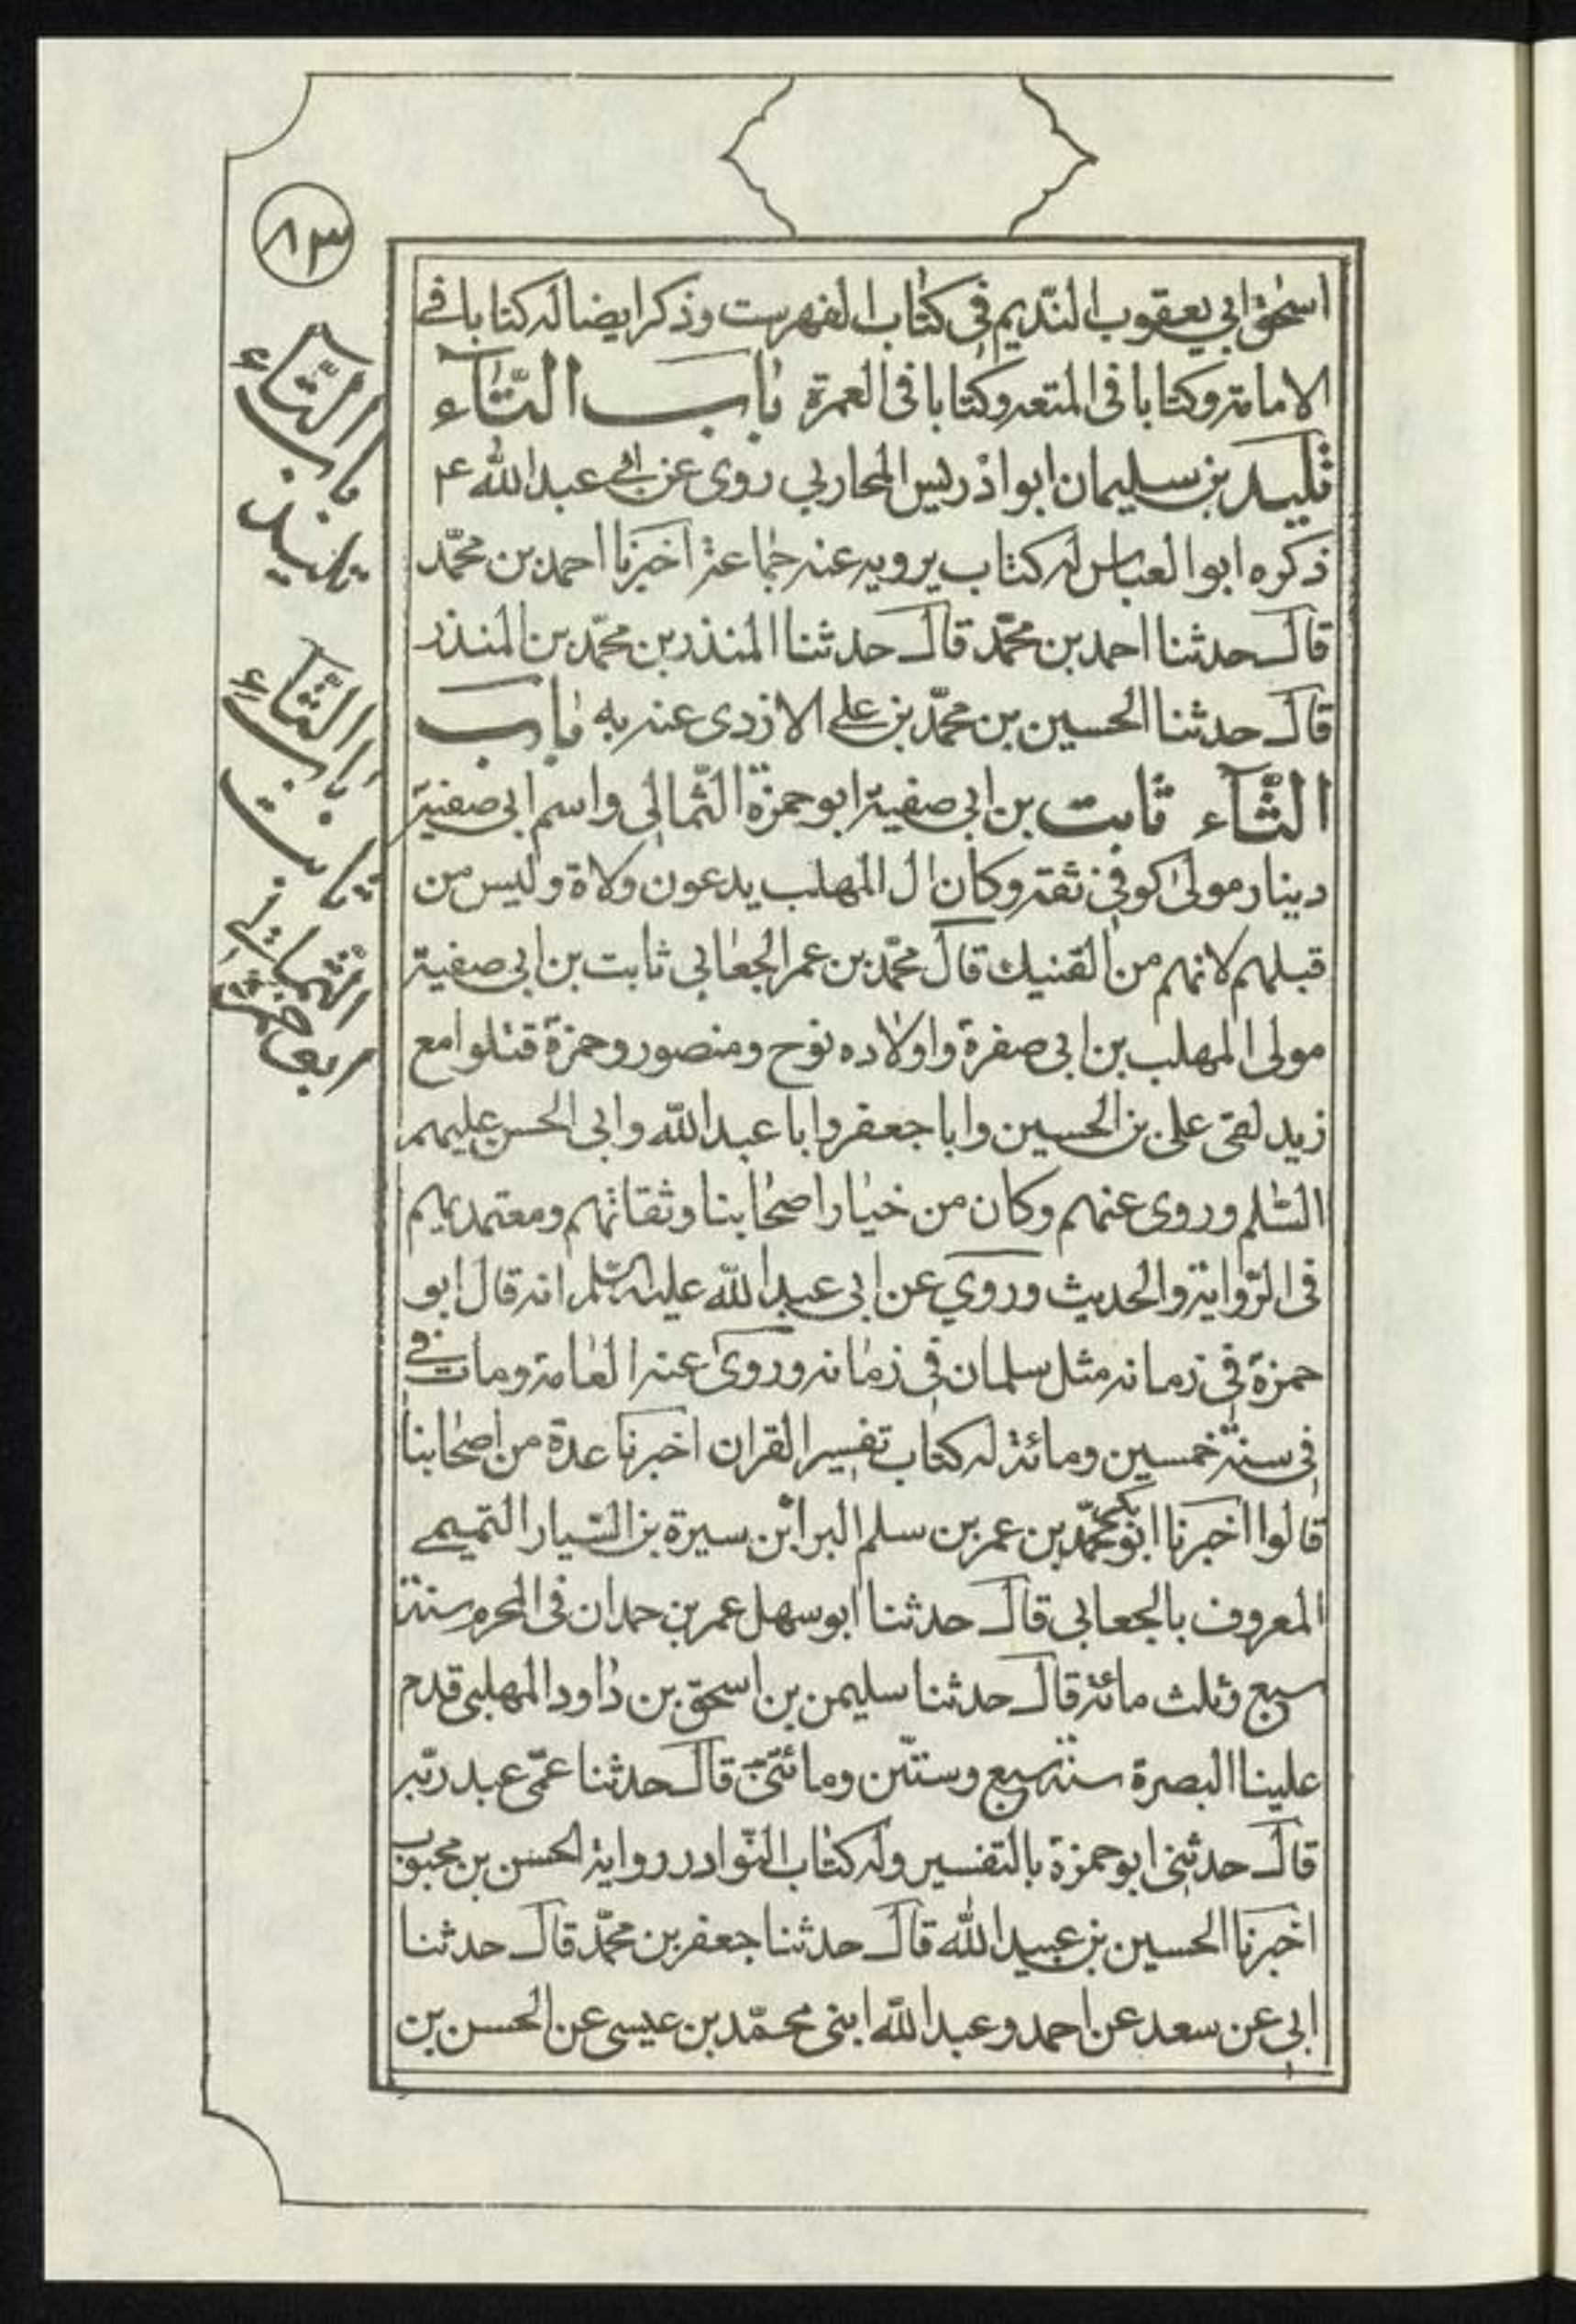 ٨٣
اسحق ابي يعقوب النّديم في كتاب الفهرست وذكر ايضا له كتابا في
الامامة وكتابا في المتعه وكتابا في العمرة باب التّآء
تليد بن سليمان ابو ادريس المحاربي روى عن ابي عبد الله ع
ذكره ابو العباس له كتاب يرويه عنه جماعة اخبرنا احمد بن محمّد
قال حدثنا احمد بن محمّد قال حدثنا المنذر بن محمّد بن المنذر
قال حدثنا الحسين بن محمّد بن علي الازدى عنه به باب
الثّآء ثابت بن ابي صفية ابو حمزة الثّمالي واسم ابي صفية
دينار مولى كوفي ثقة وكان ال المهلب يدعون ولاة وليس من
قبلهم لانهم من القنيك قال محمّد بن عمر الجعابي ثابت بن ابي صفية
مولى المهلب بن ابي صفرة واولاده نوح ومنصور وحمزة قتلوا مع
زيد لقى على بن الحسين وابا جعفر وابا عبد الله وابى الحسن عليهم
السّلم وروى عنهم وكان من خيار اصحابنا وثقاتهم ومعتمديهم
في الرّواية والحديث وروي عن ابي عبد الله عليه السّلم انه قال ابو
حمزة في زمانه مثل سلمان في زمانه وروى عنه العامة ومات في
في سنة خمسين ومائة له كتاب تفسير القران اخبرنا عدة من اصحابنا
قالوا اخبرنا ابو بكر محمّد بن عمر بن سلم البرا بن سيرة بن السّيار التّميمي
المعروف بالجعابي قال حدثنا ابو سهل عمر بن حمدان في المحرم سنة
سبع وثلث مائة قال حدثنا سليمن بن اسحق بن داود المهلبى قدم
علينا البصرة سنة سبع وستّين ومائتين قال حدثنا عمّى عبد ربّه
قال حدثني ابو حمزة بالتفسير وله كتاب النّوادر رواية الحسن بن محبوب
اخبرنا الحسين بن عبيد الله قال حدثنا جعفر بن محمّد قال حدثنا
ابي عن سعد عن احمد وعبد الله ابنى محمّد بن عيسى عن الحسن بن
باب التّاء
تليد
باب الثّاء
ثابت بن